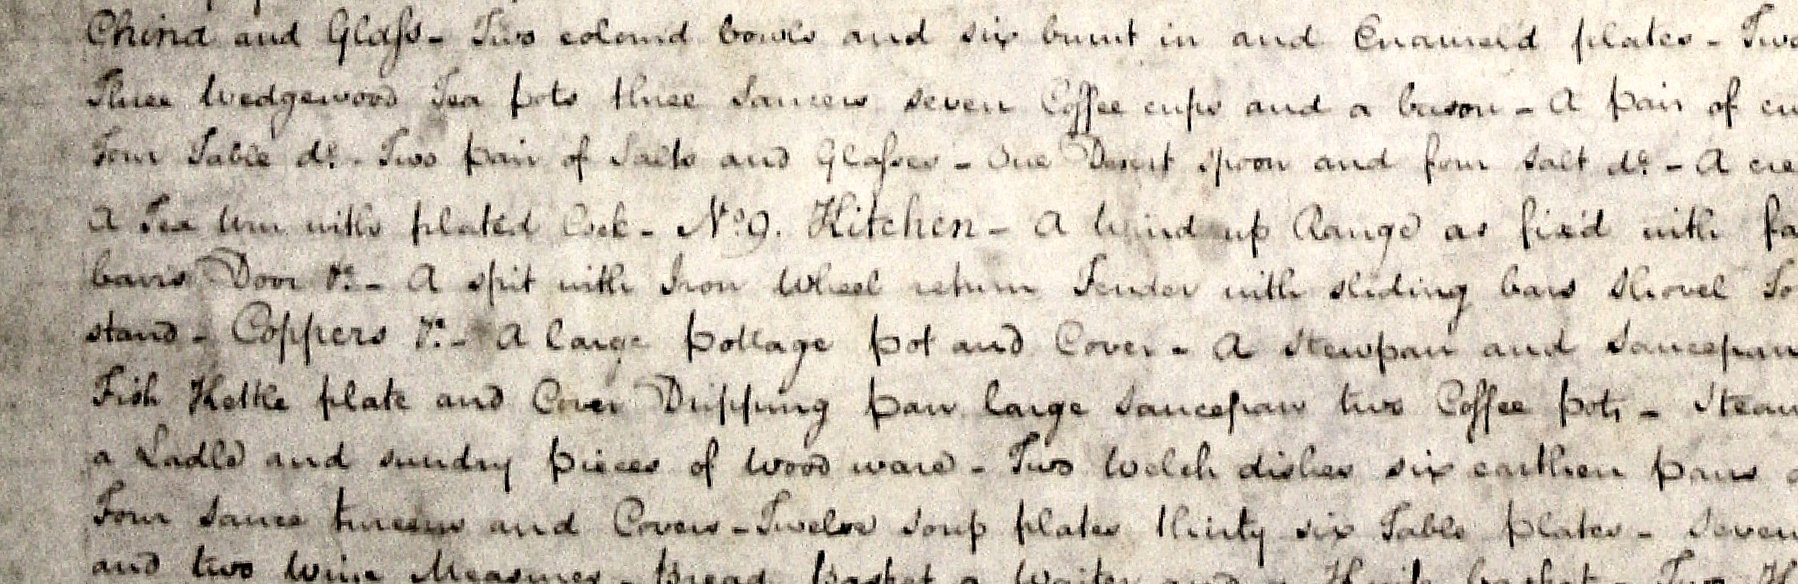 China and Glass - Two colourd bowls and six burnt in and Enameld plates - Two
Three Wedgewood Tea pots three Saucers seven Coffee cups and a bason - A pair of
Four Table do. - Two pair of Salts and Glasses - One Desert Spoon and four Salt do. - A
A Tea Urn with plated Cock - No. 9. Kitchen - A Wind up Range as fix'd with
barrs Door &c. - A spit with Iron Wheel return Fender with sliding bars Shovel
stand - Coppers &c. - A large Pottage Pot and Cover - A Stewpan and Saucepan
Fish Kettle plate and Cover Dripping Pan large Saucepan two Coffee Pots -
a Ladle and sundry Pieces of Wood ware - Two Welch dishes six earthen Pans
Four Sauce tureens and Covers - Twelve soup plates thirty six Table Plates - Seven
and two Wine Measures - Bread Basket a Waiter and a Knife basket - Two